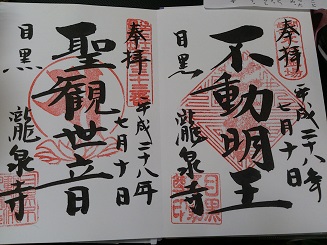 奉拝
不動明王
平成二十八年
七月十日
目黒
瀧泉寺
奉拝
聖観世音
平成二十八年
七月十日
目黒
瀧泉寺